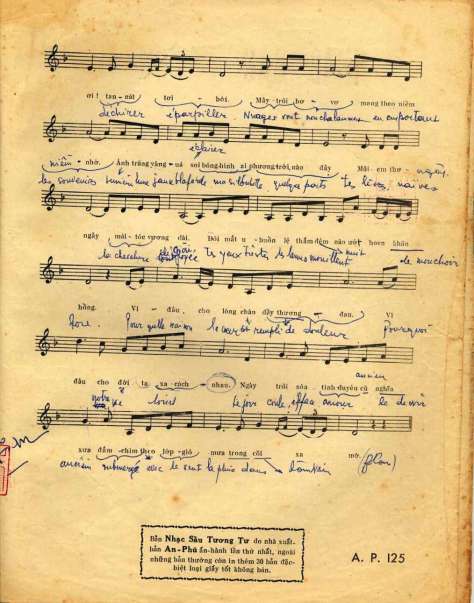 ơi! tan-nát tơi bời. Mây trôi hơ-vơ mang theo niềm
déchirer éparpiller Nuages vont nonchalamment en emportant
éclairer
niềm-nhớ. Ánh trăng vàng-uá soi bóng hình ai phương-trời nào đây Mái-em thơ-ngây.
les souvenirs lumière lune jaune blafarde ma silhouette, quelque part te naïves
ngây mái-tóc vương dài. Đôi mắt u-buồn lệ thắm đẫm nào ướt hoen khăn
la chevelure tes yeux tristes les larmes mouillent le mouchoir
hồng. Vì-đâu, cho lòng chứa đầy thương đau. Vì
Rose. Pour quelle raison le cœur est rempli de douleur Pourquoi
ancien
đâu cho đời ta xa-cách nhau. Ngày trôi xóa tình duyên cũ nghĩa
notre vie loins le jour coule, effaça amour le devoir
xưa đắm-chìm theo lớp-gió mưa trong cõi xa mờ.
ancien submergé avec le vent la pluie dans lointain (flou)
Bản Nhạc Sầu Tương Tư do nhà xuất-
bản An-Phú ấn-hành lần thứ nhất, ngoài
những bản thường còn in thêm 30 bản đặc-
biệt loại giấy tốt không bán.
A. P. 125